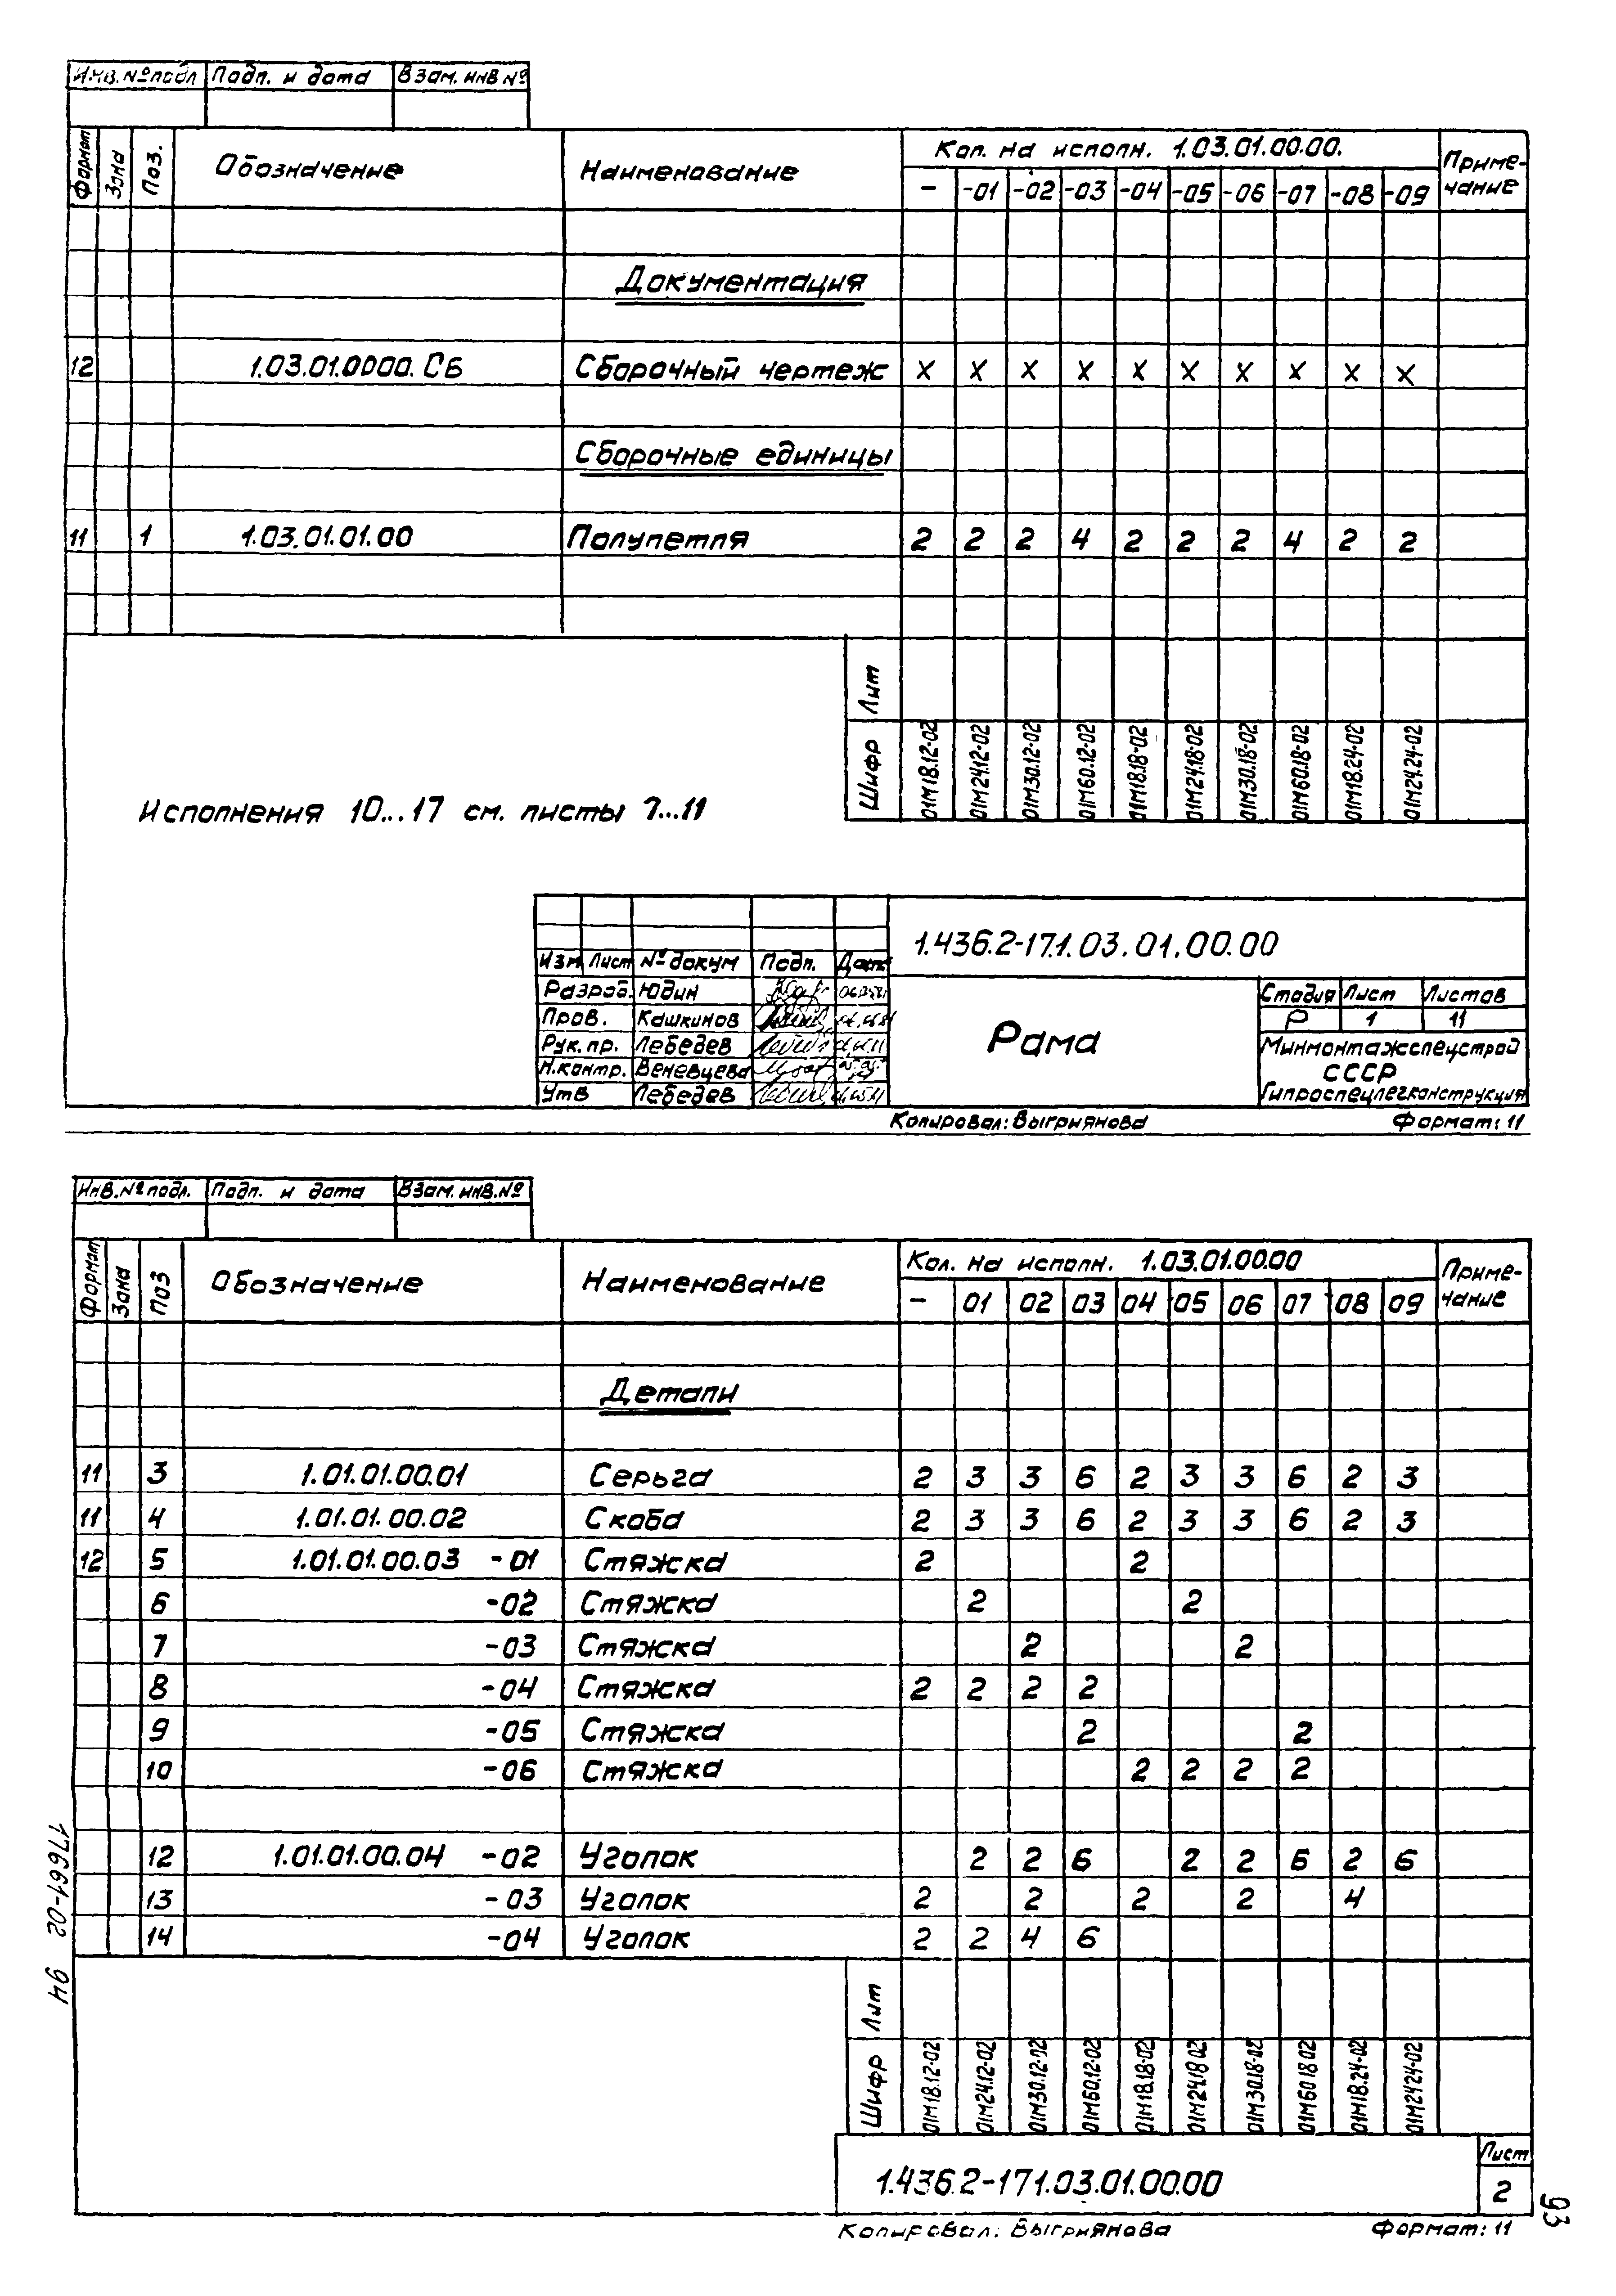 Инв.№подл Подп. и дата Взам. инв №
Формат Зона Поз. Обозначение Наименование Кол. на исполн. 1.03.01.00.00. Приме-чание
- -01 -02 -03 -04 -05 -06 -07 -08 -09
Документация
12 1.03.01.0000.СБ Сборочный чертеж х х х х х х х х х х
Сборочные единицы
11 1 1.03.01.01.00 Полупетля 2 2 2 4 2 2 2 4 2 2
Лит
Шифр 01М18.12-02 01М24.12-02 01М30.12-02 01М60.12-02 01М18.18-02 01М24.18-02 01М30.18-02 01М60.18-02 01М18.24-02 01М24.24-02
Исполнения 10...17 см. листы 7...11
1.436.2-17.1.03.01.00.00
Изм Лист № докум Подп. Дата
Разраб. Юдин
Пров. Кашкинов
Рук. пр. Лебедев
Н.контр. Веневцева
Утв Лебедев
Рама
Стадия Лист Листов
Р 1 11
Минмонтажспецстрой
СССР
Гипроспецлегконструкция
Копировал: Выгриянова Формат: 11
Инв.№ подл. Подп. и дата Взам. инв.№
Формат Зона Поз Обозначение Наименование Кол. на исполн. 1.03.01.00.00 Приме-чание
- 01 02 03 04 05 06 07 08 09
Детали
11 3 1.01.01.00.01 Серьга 2 3 3 6 2 3 3 6 2 3
11 4 1.01.01.00.02 Скоба 2 3 3 6 2 3 3 6 2 3
12 5 1.01.01.00.03 -01 Стяжка 2 2
6 -02 Стяжка 2 2
7 -03 Стяжка 2 2
8 -04 Стяжка 2 2 2 2
9 -05 Стяжка 2 2
10 -06 Стяжка 2 2 2 2
12 1.01.01.00.04 -02 Уголок 2 2 6 2 2 6 2 6
13 -03 Уголок 2 2 2 2 4
14 -04 Уголок 2 2 4 6
Лит
Шифр 01М18.12-02 01М24.12-02 01М30.12-02 01М60.12-02 01М18.18-02 01М24.18 02 01М30.18-02 01М60 18 02 01М18.24-02 01М24 24-02
1.436.2-171.03.01.00.00
Лист
2
Копировал: Выгриянова Формат: 11
17661-02 94
93